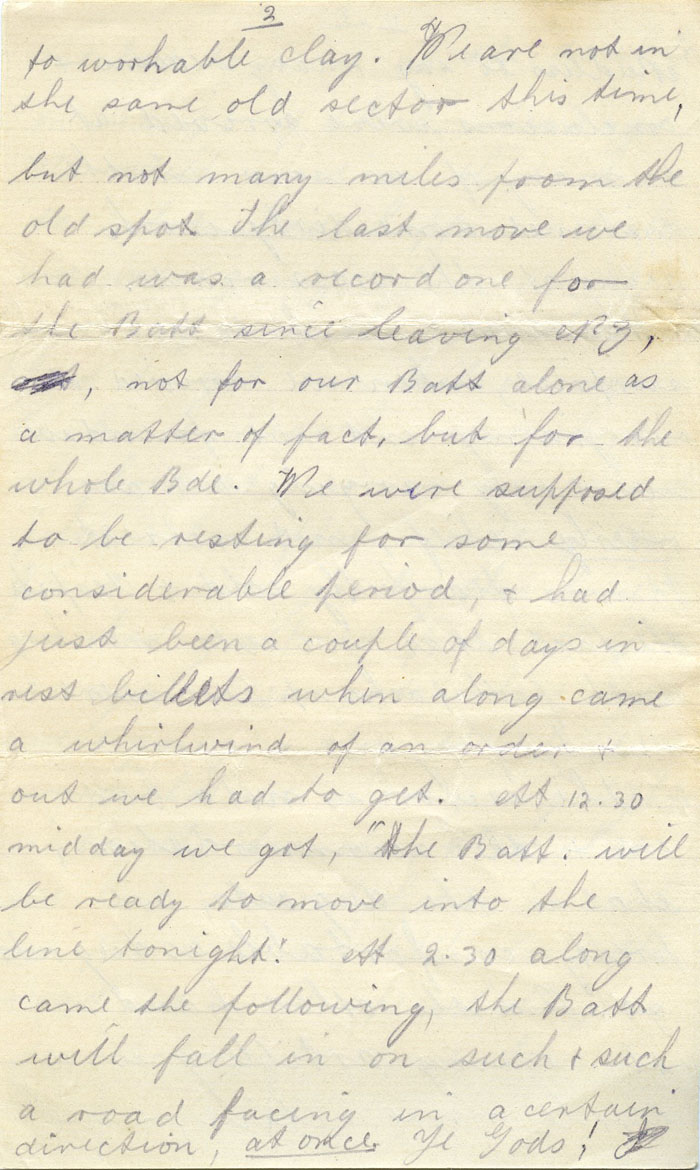 3
to workable clay. We are not in
the same old sector this time,
but not many miles from the
old spot The last move we
had was a record one for
the Batt since leaving NZ,
, not for our Batt alone as
a matter of fact, but for the
whole Bde. We were supposed
to be resting for some
considerable period, & had
just been a couple of days in
rest billets when along came
a whirlwind of an order &
out we had to get. At 12.30
midday we got, "the Batt. will
be ready to move into the
line tonight! At 2.30 along
came the following, the Batt
will fall in on such & such
a road facing in a certain
direction, at once. Ye Gods!